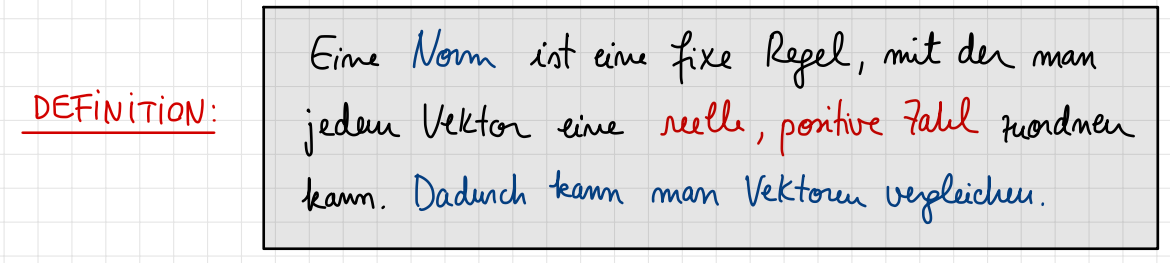 DEFINITION:
Eine Norm ist eine fixe Regel, mit der man
jedem Vektor eine reelle, positive Zahl zuordnen
kann. Dadurch kann man Vektoren vergleichen.